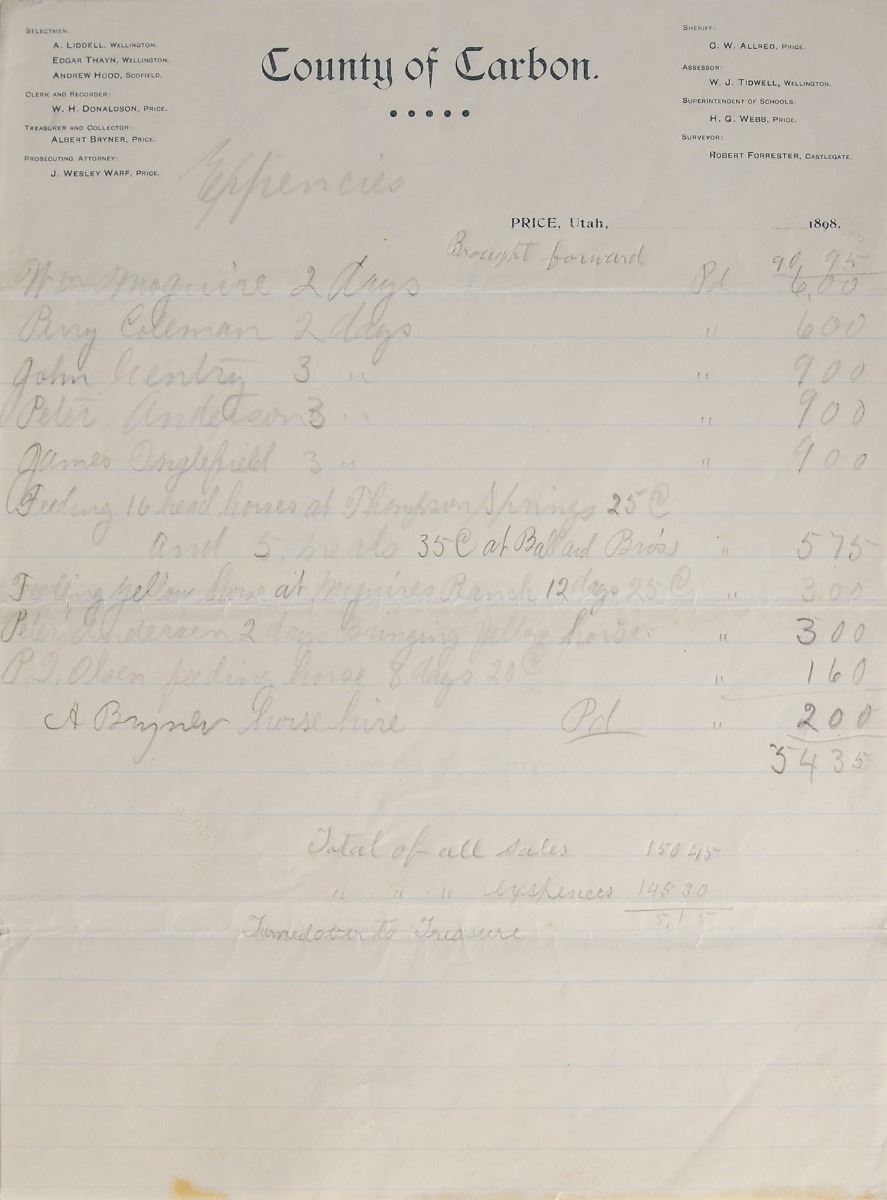 SELECTMEN:
A. LIDDELL, WELLINGTON.
EDGAR THAYN, WELLINGTON.
ANDREW HOOD, SCOFIELD.
CLERK AND RECORDER:
W. H. DONALDSON, PRICE.
TREASURER AND COLLECTOR:
ALBERT BRYNER, PRICE.
PROSECUTING ATTORNEY:
J. WESLEY WARF, PRICE.
County of Carbon.
SHERIFF:
C. W. ALLRED, PRICE.
ASSESSOR:
W. J. TIDWELL, WELLINGTON.
SUPERINTENDENT OF SCHOOLS:
H. G. WEBB, PRICE.
SURVEYOR:
ROBERT FORRESTER, CASTLEGATE.
Expencies
PRICE, Utah, 1898.
Brought forward 90,95
Wm Maguire 2 days Pd 6,00
Perry Coleman 2 days " 600
John Gentry 3 " " 900
Peter Anderson 3 " " 900
James Inglefield 3 " " 900
Feeding 16 head horses at Thompson Springs 25¢
and 5 meals 35¢ at Ballard Bro's " 575
Feeding yellow horse at Mcguires Ranch 12 days 25¢ " 300
Peter Andersen 2 days bringing yellow horse " 300
Olsen feeding horse 8 days 20¢ " 160
A Bryner horse hire Pd " 200
5435
Total of all sales 150 45
" " " expences 145 30
5,15
Turned over to Treasure